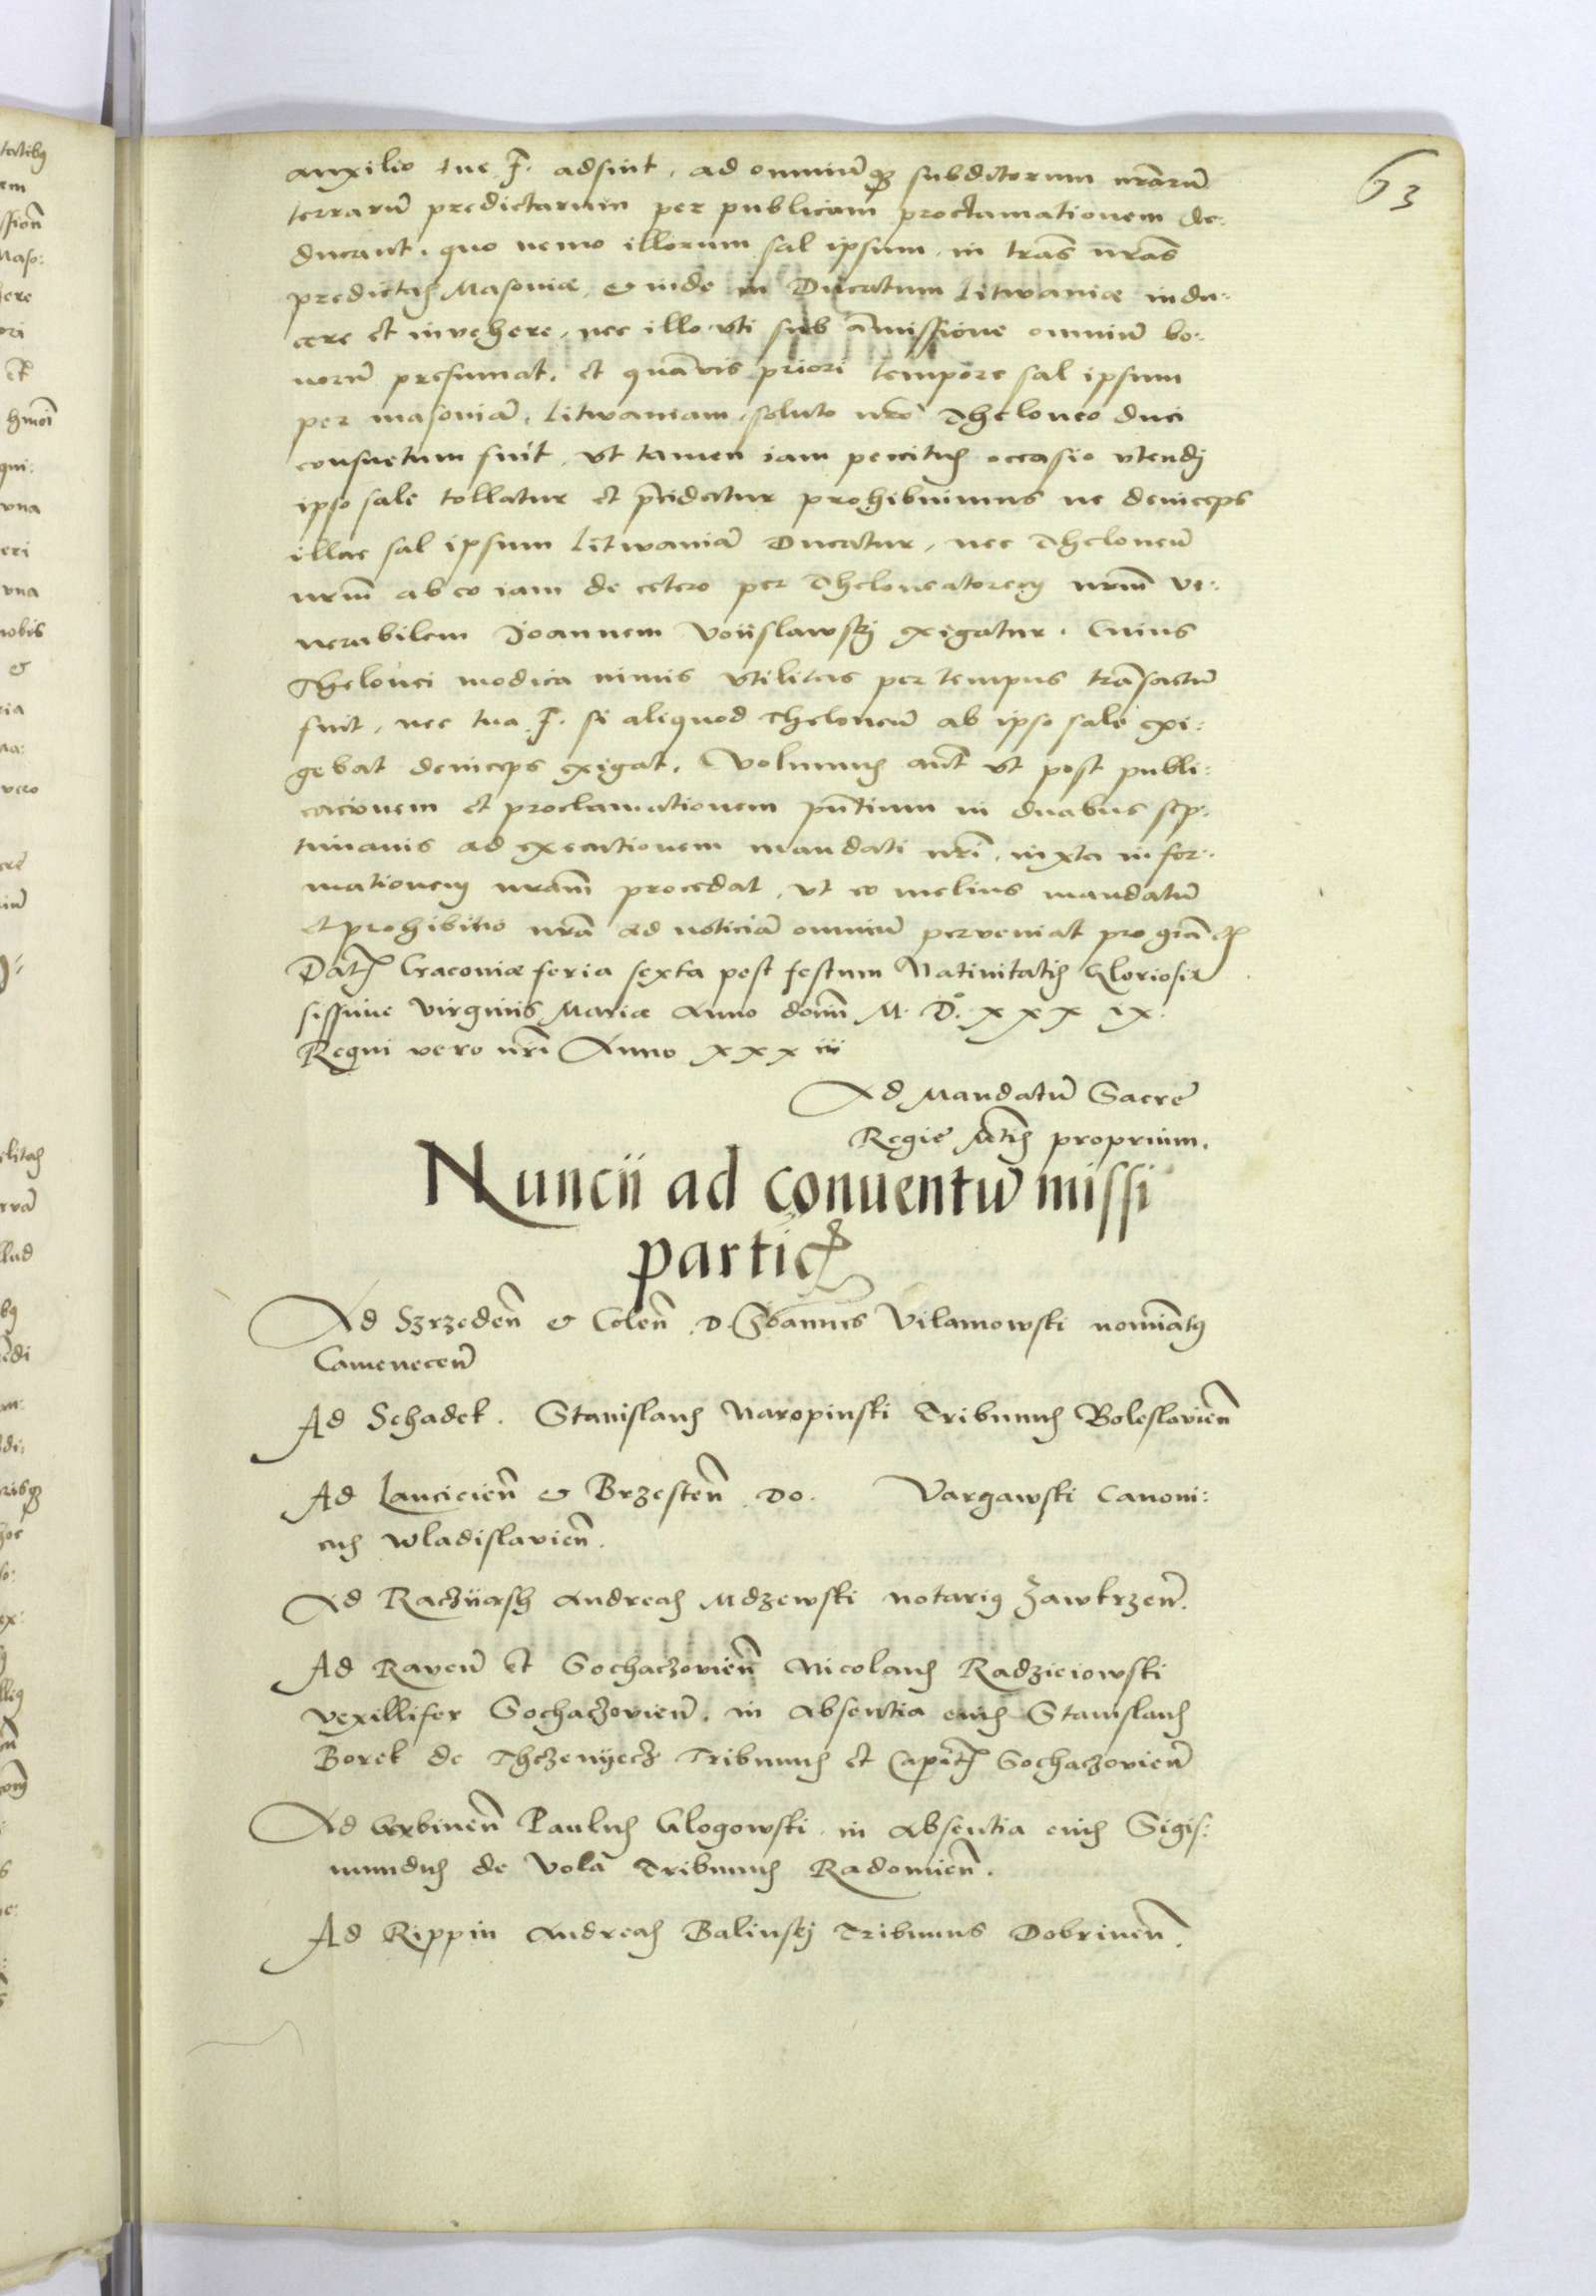 63
auxilio tue F. adsint, ad omniūqȝ subditorum nrārū
terrarū predictarum per publicam proclamationem de:
ducant, quo nemo illorum sal ipsum in trās nrās
predictas Masoviæ, & inde in Ducatum Litwaniæ indu:
cere et invehere, nec illo vti sub āmissione omniū bo:
norū presumat, et quāvis priori tempore sal ipsum
per masoviā, Litwaniam, soluto nrō Theloneo duci
consuetum fuit, vt tamen iam penitus occasio vtendj
ipso sale tollatur et p̄cidatur prohibuimus ne deinceps
illac sal ipsum Litwaniā Ducatur, nec Theloneū
nrm̄ ab eo iam de cetero per Theloneatorem nrm̄ ve:
nerabilem Joannem Voijslawskj exigatur. Cuius
Thelonei modica nimis vtilitas per tempus trāsactū
fuit, nec tua F. si aliquod theloneū ab ipso sale exi:
gebat deinceps exigat. Volumus aūt vt post publi:
cacionem et proclamationem p̄ntium in duabus sep:
timanis ad executionem mandati nrī, iuxta infor:
mationem nram̄ procedat, vt eo melius mandatū
et prohibitio nrā ad noticiā omniū perveniat pro grā etc
Dat Cracoviæ feria sexta post festum Nativitatis Gloriosis
sissime virginis Mariæ Anno domī M. D°. xxx ix.
Regni vero nrī Anno xxx iii
Ad Mandatū Sacre
Regie Mtis proprium.
Nuncii ad conuentū missi
partic
Ad Szrzedeñ & Coleñ D. Joannes Vilamowski nomiātus
Cameneceñ
Ad Schadek. Stanislaus Naropinski Tribunus Boleslavieñ
Ad Lancicieñ & Brzesteñ Do. Vargawski Canoni:
cus Wladislavieñ.
Ad Raczijasch Andreas Mdzewski notarius Zawkrzeñ.
Ad Raveñ et Sochaczovieñ Nicolaus Radzieiowski
vexillifer Sochaczovieñ. in absentia eius Stanislaus
Borek de Thczenijecz Tribunus et Capit Sochaczovieñ
Ad Paulus Glogowski in absentia eius Sigis:
mundus de Vola Tribunus Radomieñ.
Ad Rippin Andreas Balinskj Tribunus Dobrineñ.